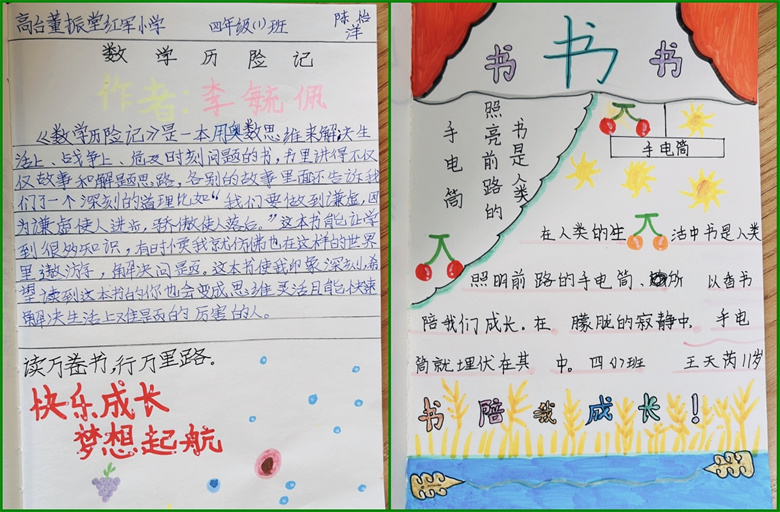 高台董振堂红军小学 四年级(1)班 陈柏洋
数学历险记
作者:李毓佩
《数学历险记》是一本用奥数思维来解决生
活上、战争上、危及时刻问题的书,书里讲得不仅
仅故事和解题思路,各别的故事里面还告诉我
们了一个深刻的道理比如“我们要做到谦虚,因
为谦虚使人进步,骄傲使人落后。”这本书能让学
到很多知识,有时候我就仿佛也在这样的世界
里遨游,解决问题。这本书使我印象深刻,希
望读到这本书的你也会变成思维灵活且能快速
解决生活上难题的厉害的人。
读万卷书,行万里路。
快乐成长
梦想起航
书 书 书
书是人类
照亮前路的
手电筒
手电筒
在人类的生活中书是人类
照明前路的手电筒、所以看书
陪我们成长.在朦胧的寂静中.手电
筒就埋伏在其中.四(7)班 王天芮11岁
书陪我成长!